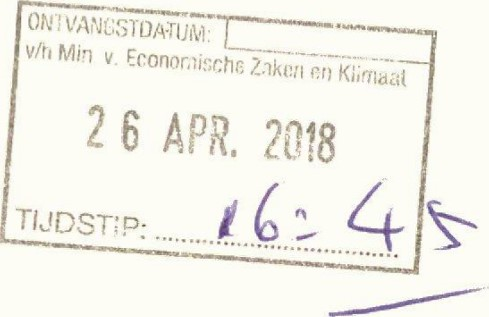 ONTVANGSTDATUM:
v/h Min v. Economische Zaken en Klimaat
26 APR. 2018
TIJDSTIP: ............ 16:45